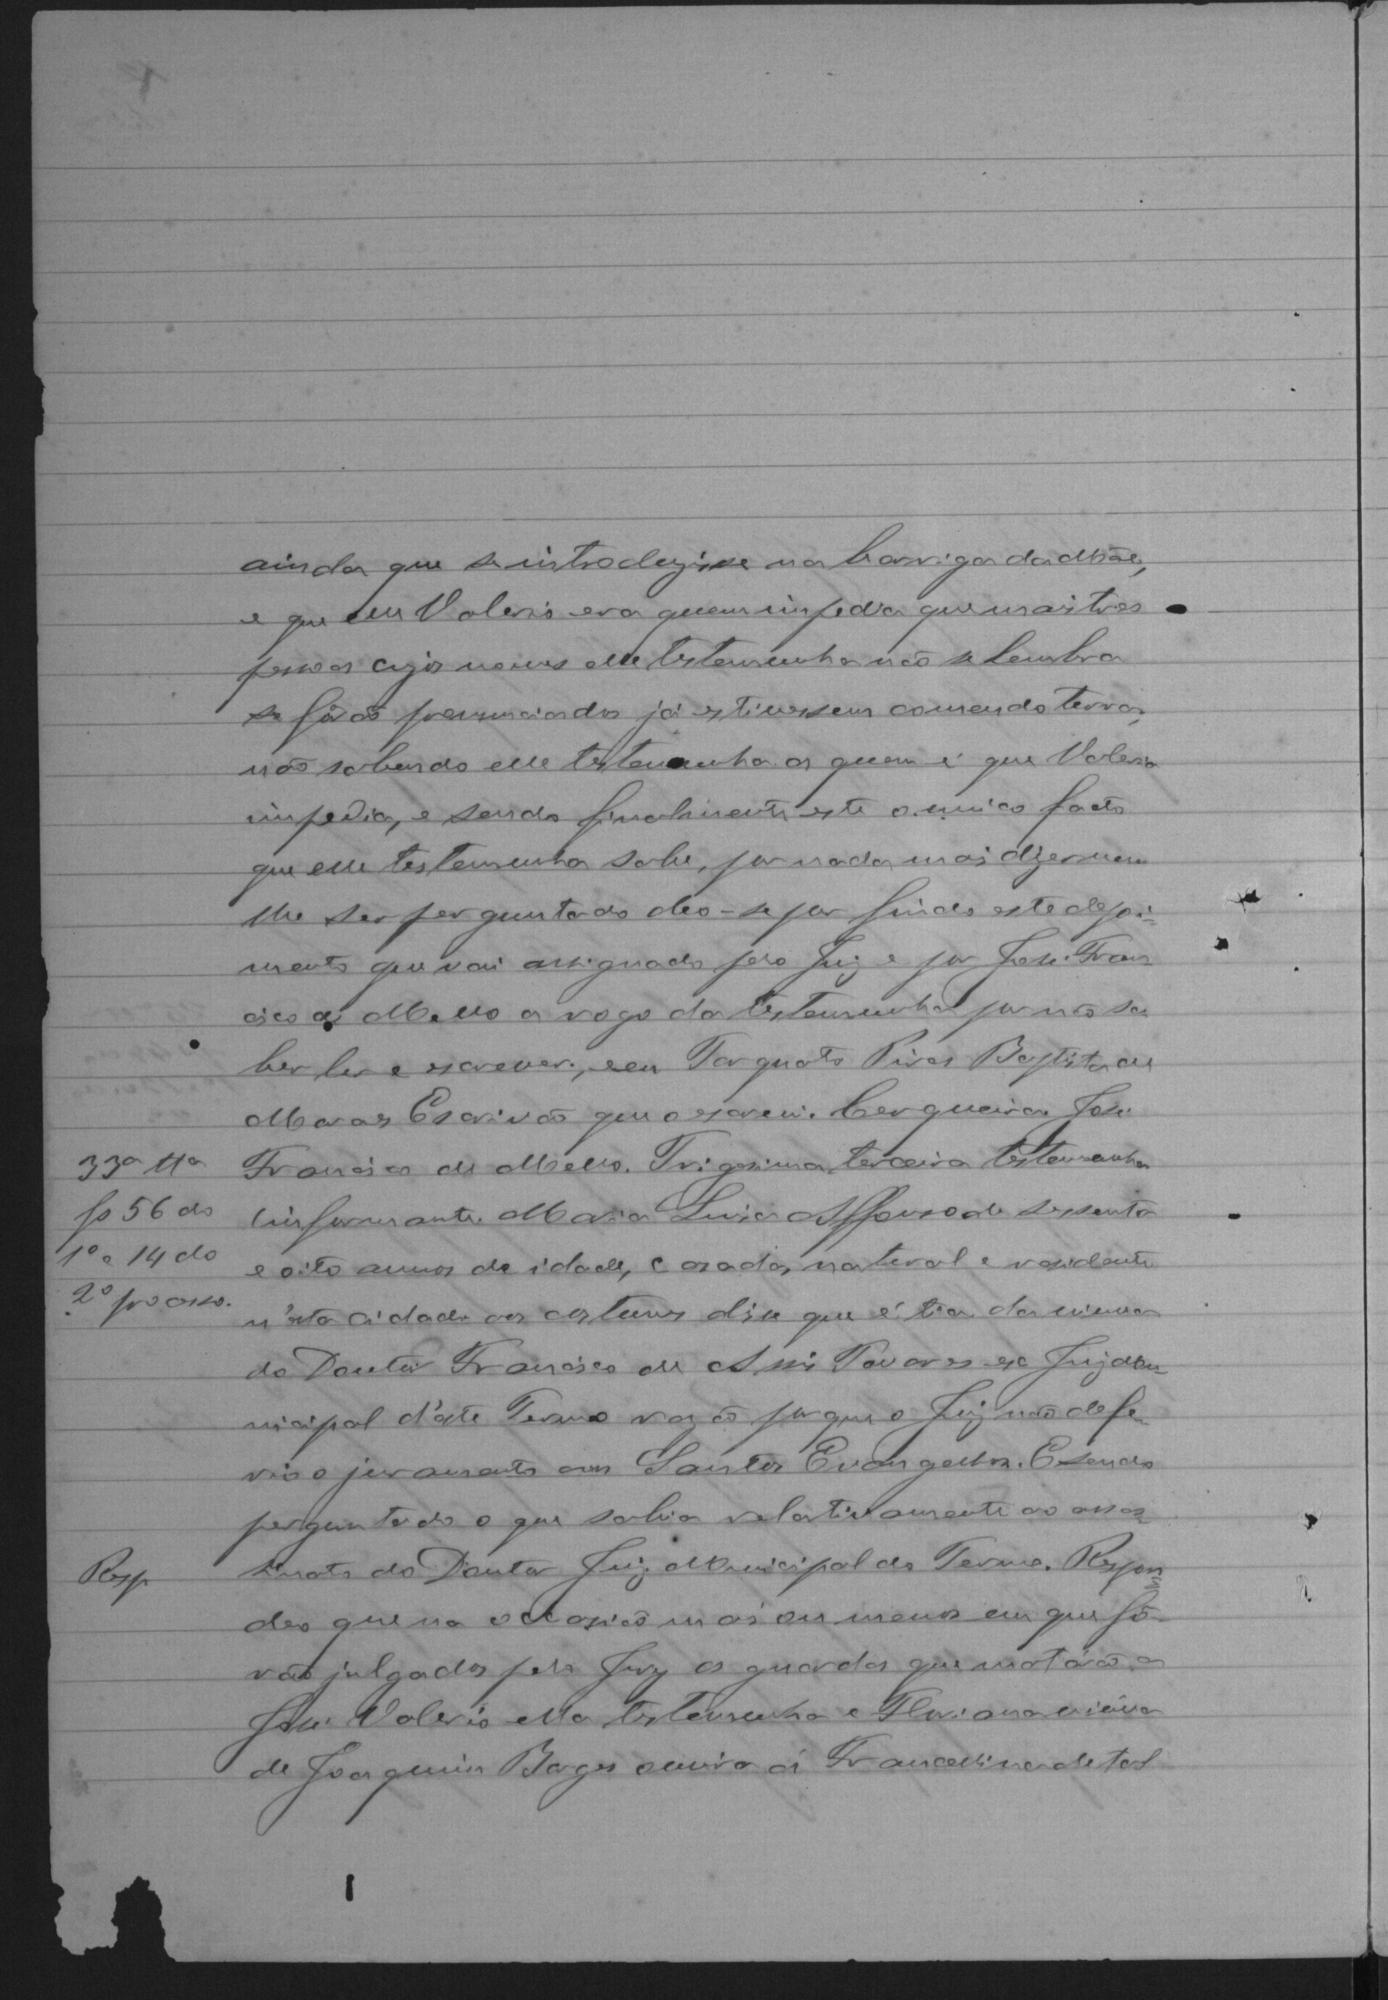 ainda que se introduzisse na barriga da Mãe,
e que elle Valerio era quem impedia que mais tres
pessoas cujos nomes elle testemunha não se lembra
se fôrão pronunciados já estivessem comendo terra,
não sabendo elle testemunha a quem é que Valerio
impedia, e sendo finalmente este o unico facto
que elle testemunha sabe, por nada mais dizer nem
lhe ser perguntado deo-se por findo este depoi-
mento que vai assignado pelo Juiz e por José Fran-
cisco de Mello a rogo da testemunha por não sa-
ber ler e escrever, eu Torquato Pires Baptista de
Moraes Escrivão que o escrevi. Cerqueira. José
33ª ttª
Francisco de Mello. Trigesima terceira testemunha
fs 56 do
(informante Maria Luisa Affonso de sessenta
1º e 14 do
e oito annos de idade, casada, natural e residente
2º processo.
n'esta cidade aos costumes disse que é tia da viuva
do Doutor Francisco de Assis Tavares ex Juiz Mu-
nicipal d'este Termo razão porque o Juiz não defe-
rio o juramento aos Santos Evangelhos. E sendo
perguntado o que sabia relativamente ao assas-
Resp.
sinato do Doutor Juiz Municipal do Termo. Respon
deo que na occasião mais ou menos em que fô-
rão julgados pelo Jury os guardas que matárão a
José Valerio ella testemunha e Floriana viúva
de Joaquim Borges ouvira á Francellina de tal